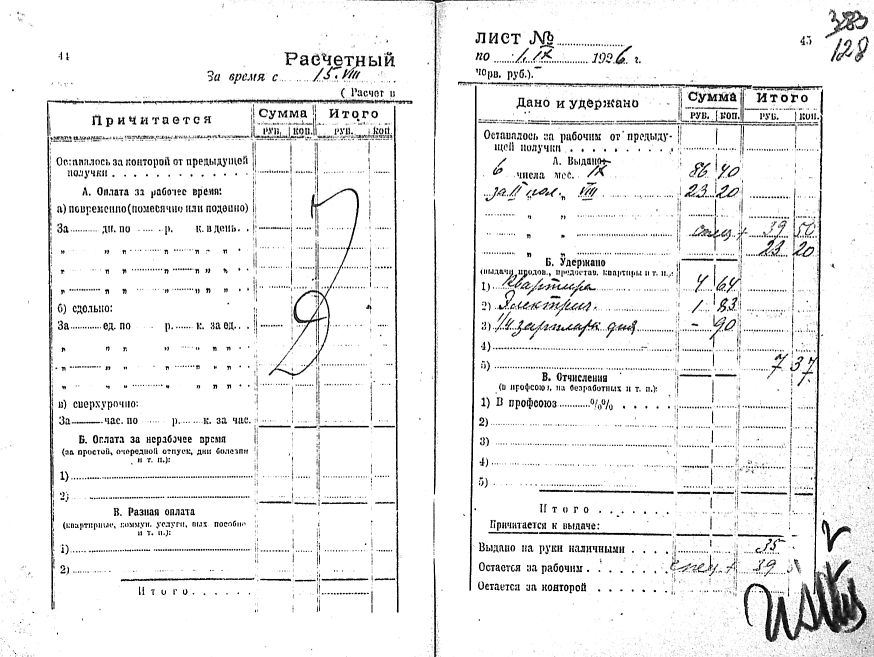 44
Расчетный
За время с 15.VIII
( Расчет в
Причитается
Сумма
Итого
РУБ. КОП. РУБ. КОП.
Оставалось за конторой от предыдущей
получки . . . . . . . . . . . .
А. Оплата за рабочее время:
а) повременно (помесячно или поденно)
За ........ дн. по ........ р. к. в день. . .
„ „ „ „ „ „ „ .
„ „ „ „ „ „ „ .
„ „ „ „ „ „ „ .
б) сдельно:
За ........ ед. по ........ р. к. за ед. . .
„ „ „ „ „ „ „ .
„ „ „ „ „ „ „ .
в) сверхурочно:
За ........ час. по ........ р. к. за час.
Б. Оплата за нерабочее время
(за простой, очередной отпуск, дни болезни
и т. п.):
1)
2)
В. Разная оплата
(квартирные, коммун. услуги, вых пособие
и т. п.):
1)
2)
Итого . . . . . .
ЛИСТ №
45
383
128
по 1.IX 1926 г.
черв. руб.).
Дано и удержано
Сумма
Итого
РУБ. КОП. РУБ. КОП.
Оставалось за рабочим от предыду-
щей получки . . . . . . . . .
А. Выдано:
6 числа мес. IX 86 40
за II пол. VIII 23 20
„ „
„ „ + 39 50
„ „ 23 20
Б. Удержано
(выдачи продов., предостав. квартиры и т. п.):
1) Квартира 4 64
2) Электрич. 1 83
3) 1/4 дня - 90
4)
5) 7 37
В. Отчисления
(в профсоюз, на безработных и т. п.):
1) В профсоюз ........ %% . . . . .
2)
3)
4)
5)
Итого . . . .
Причитается к выдаче:
Выдано на руки наличными . . . . 35
Остается за рабочим . . . . . + 39
Остается за конторой . . . .